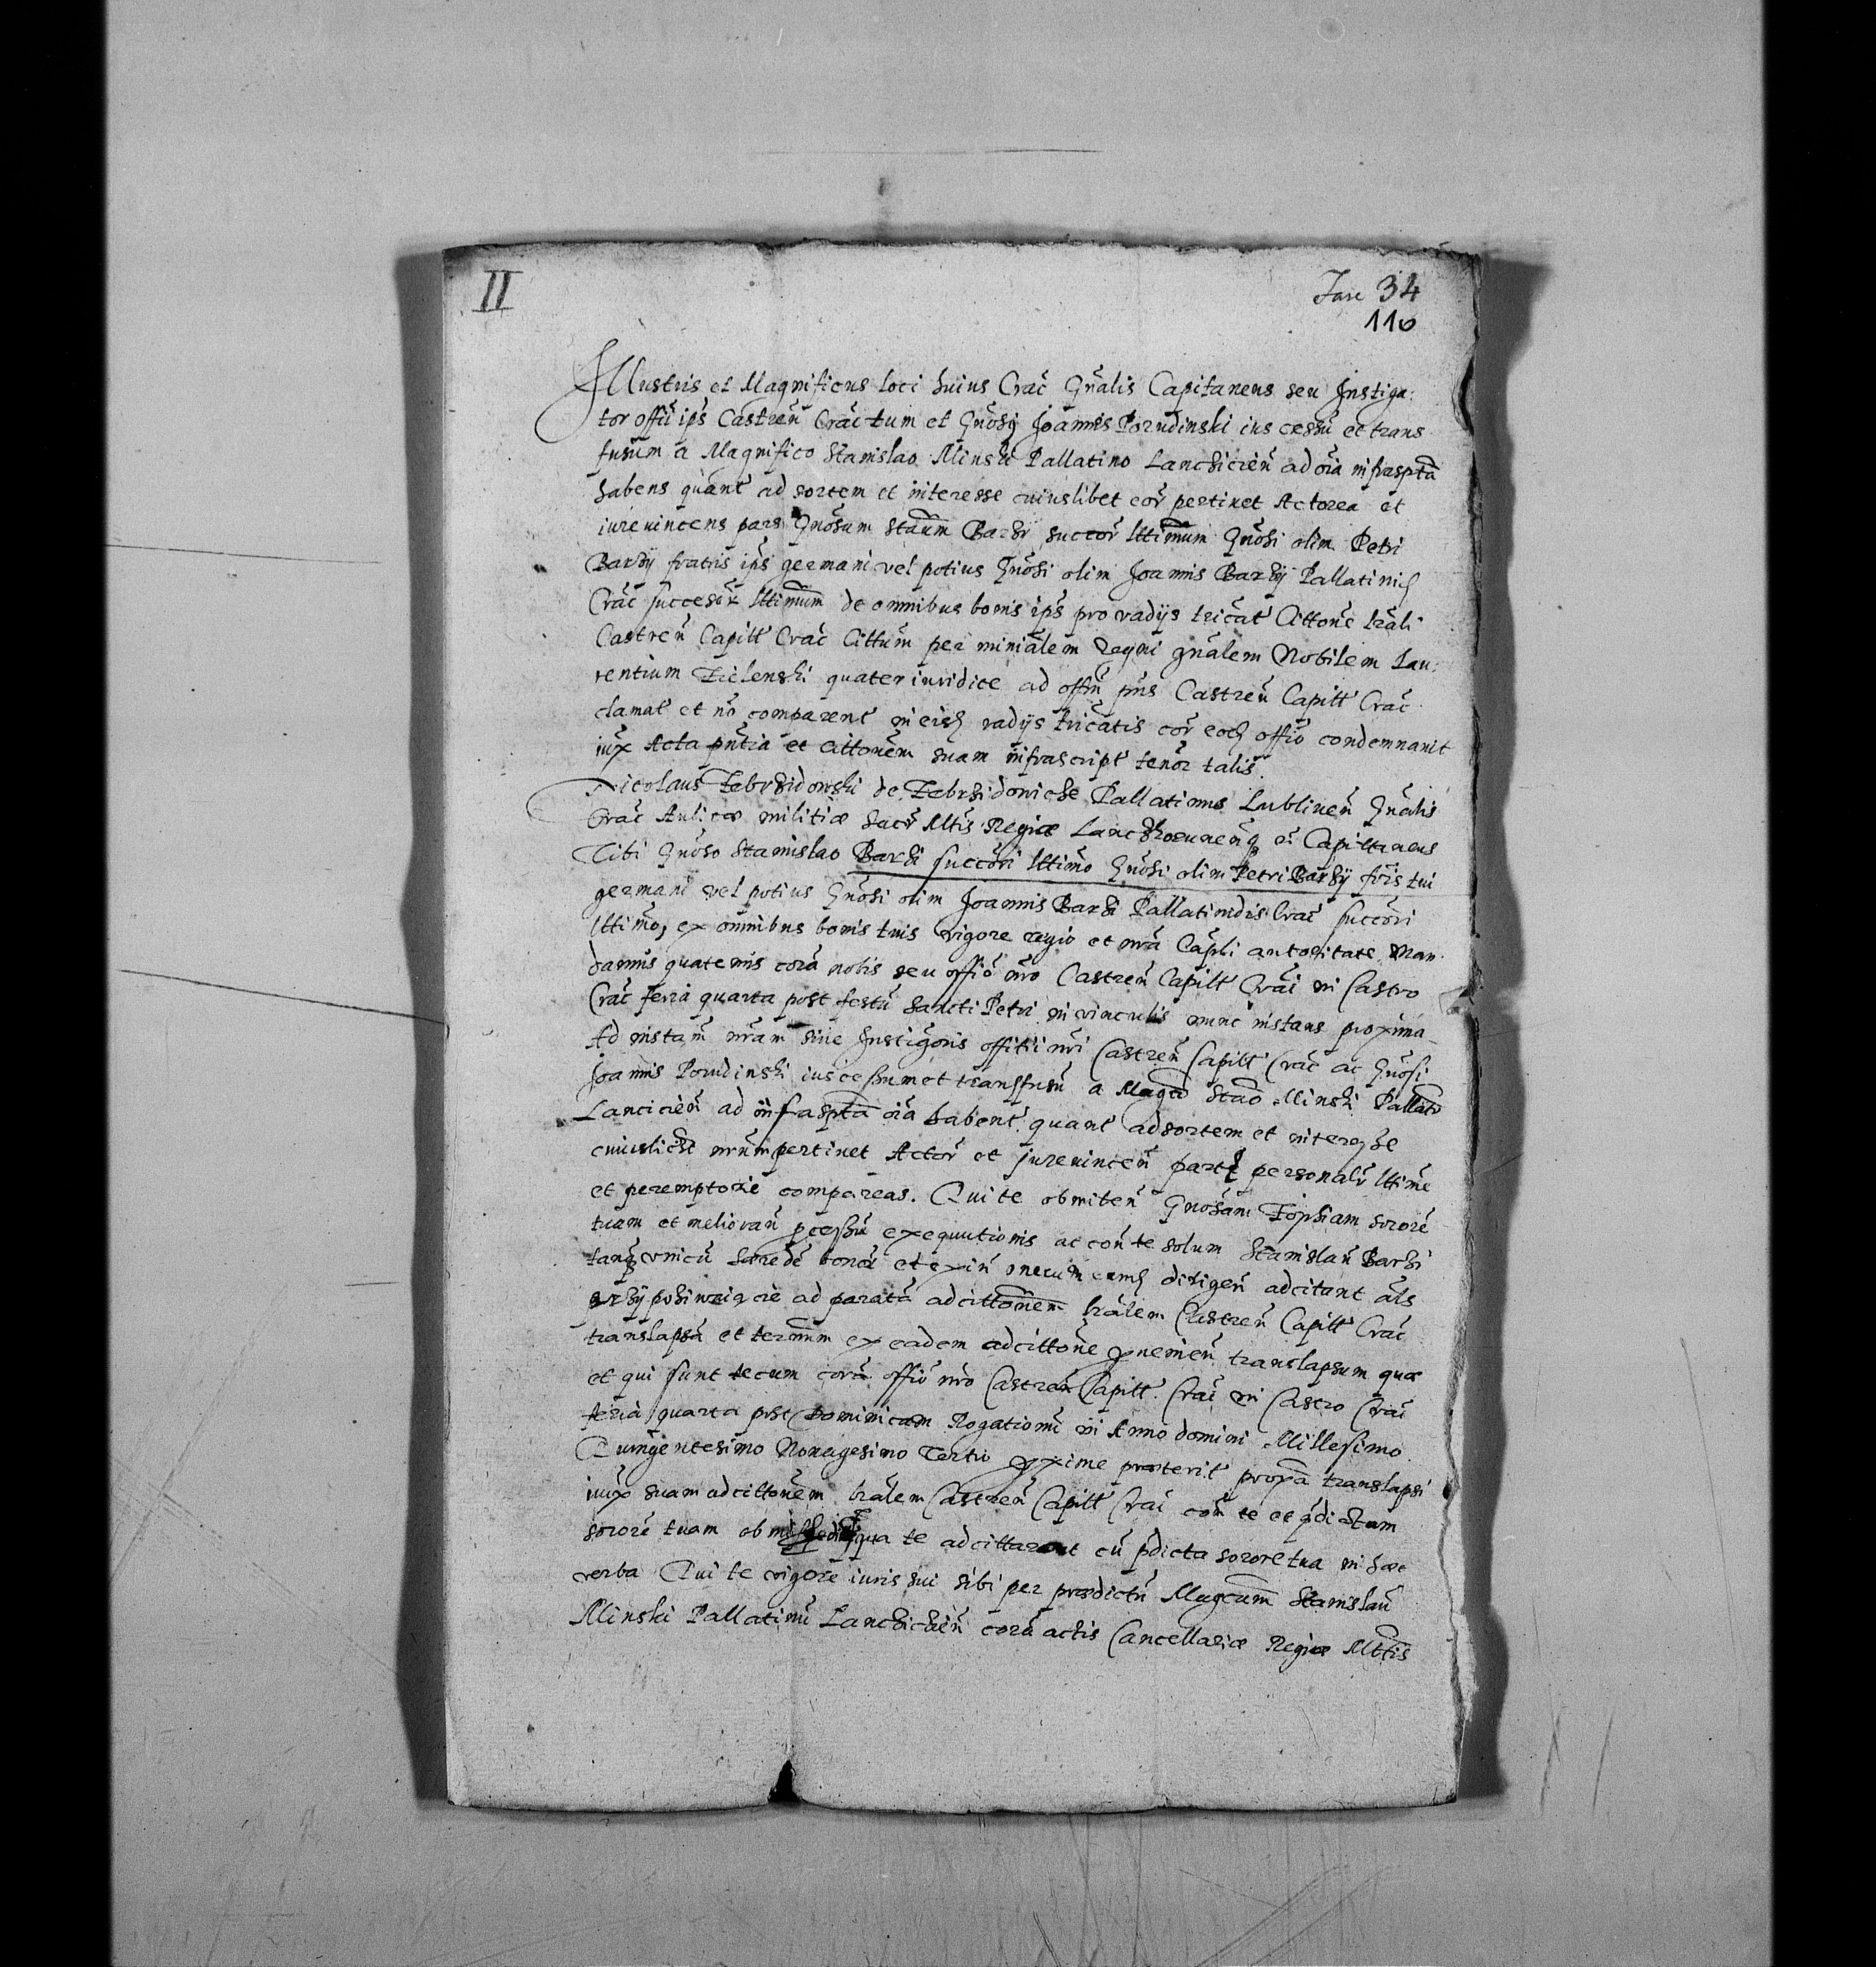 II
Fasc 34
116
Illustris et Magnificus loci huius Crac̄ Gn̄alis Capitaneus seu Instiga:
tor offīi ip̄s Castren̄ Crac̄ tum et Gn̄osy Joannis Porudinski ius cessū et trans
fusum a Magnifico Stanislao Minski Pallatino Lanchicien̄ ad oīa infrasptā
habens quant̄ ad sortem et interesse cuiuslibet eor̄ pertinet Actorea et
iurevincens pars Gn̄osum Staūm Barzi succor̄ lttimum Gn̄osi olim Petri
Barzÿ fratris ip̄s germani vel potius Gn̄osi olim Joannis Barzÿ Pallatini
Crac̄ succesor̄ lttimum de omnibus bonis ip̄s pro vadijs tricat̄ Cittone lrāli
Castren̄ Capitt̄ Crac̄ Cittum per miniālem Regni gn̄alem Nobilem Lau:
rentium Zielenski quater iuridice ad offīn pn̄s Castren̄ Capitt̄ Crac̄
clamat̄ et nō comparent̄ in eisd vadijs tricatis cor̄ eod offīo condemnavit
iux̄ Acta pn̄tia et Cittonēm suam infrascript̄ tenōr talis.
Nicolaus Zebrzidowski de Zebrzidowiche Pallatinus Lublinen̄ Gn̄alis
Crac̄ Aulicæ militiæ Sacr̄ Mtīs Regiæ Lanczkorunenq̄ Capittaneus
Tibi Gn̄oso Stanislao Barzi succōri lttimo Gn̄osi olim Petri Barzÿ fr̄is tui
germani vel potius Gn̄osi olim Joannis Barzi Pallatinidis Crac̄ succōri
lttimo, ex omnibus bonis tuis vigore regio et nr̄a Capl̄i autoritate Man
damus quatenus corā nobis seu offīo nr̄o Castren̄ Capitt̄ Crac̄ in Castro
Crac̄ feria quarta post festū Sancti Petri in vinculis nunc instans proxima
Ad instam̄ nr̄am siue Instigōris offitii nr̄i Castren̄ Capitt̄ Crac̄ ac Gn̄osi
Joannis Porudinski ius cessum et transfusū a Magcō Staō Minski Pallatō
Lancicien̄ ad infrasptā oīa habent̄ quant̄ ad sortem et interesse
cuiuslibet nr̄um pertinet Actor̄ et jurevincen̄ part personalr̄ lttime
et peremptorie compareas. Qui te obmiten̄ Gn̄osam Zophiam sororē
tuam et meliorañ pcessū exequutionis ac con̄ te solum Stanislaū Barzi
tanq̄ vnicū hæredē bonor̄ et exin̄ onerum dirigen̄ adcitant al̄s
przÿposiwaiącie ad paratā adcittonēm lrālem Castren̄ Capitt̄ Crac̄
translapsā et termīnm ex eadem adcittonē pueniēn translapsum quæ
et qui sunt tecum corā offīo nr̄o Castren Capitt̄ Crac̄ in Castro Crac̄
feria quarta post Dominicam Rogationū in Anno domini Millesimo
Quingentesimo Nonagesimo Tertio pxime præterit̄ proxā translapsi
iux̄ suam adcittonēm lrālem Castren̄ Capitt̄ Crac̄ con̄ te et pdictam
sororē tuam qua te adcittarunt cū pdicta sorore tua in hæc
verba Qui te vigore iuris sui sibi per prædictū Magcūm Stanislaū
Minski Pallatinū Lanchicien̄ corā actis Cancellariæ Regiæ Mttīs